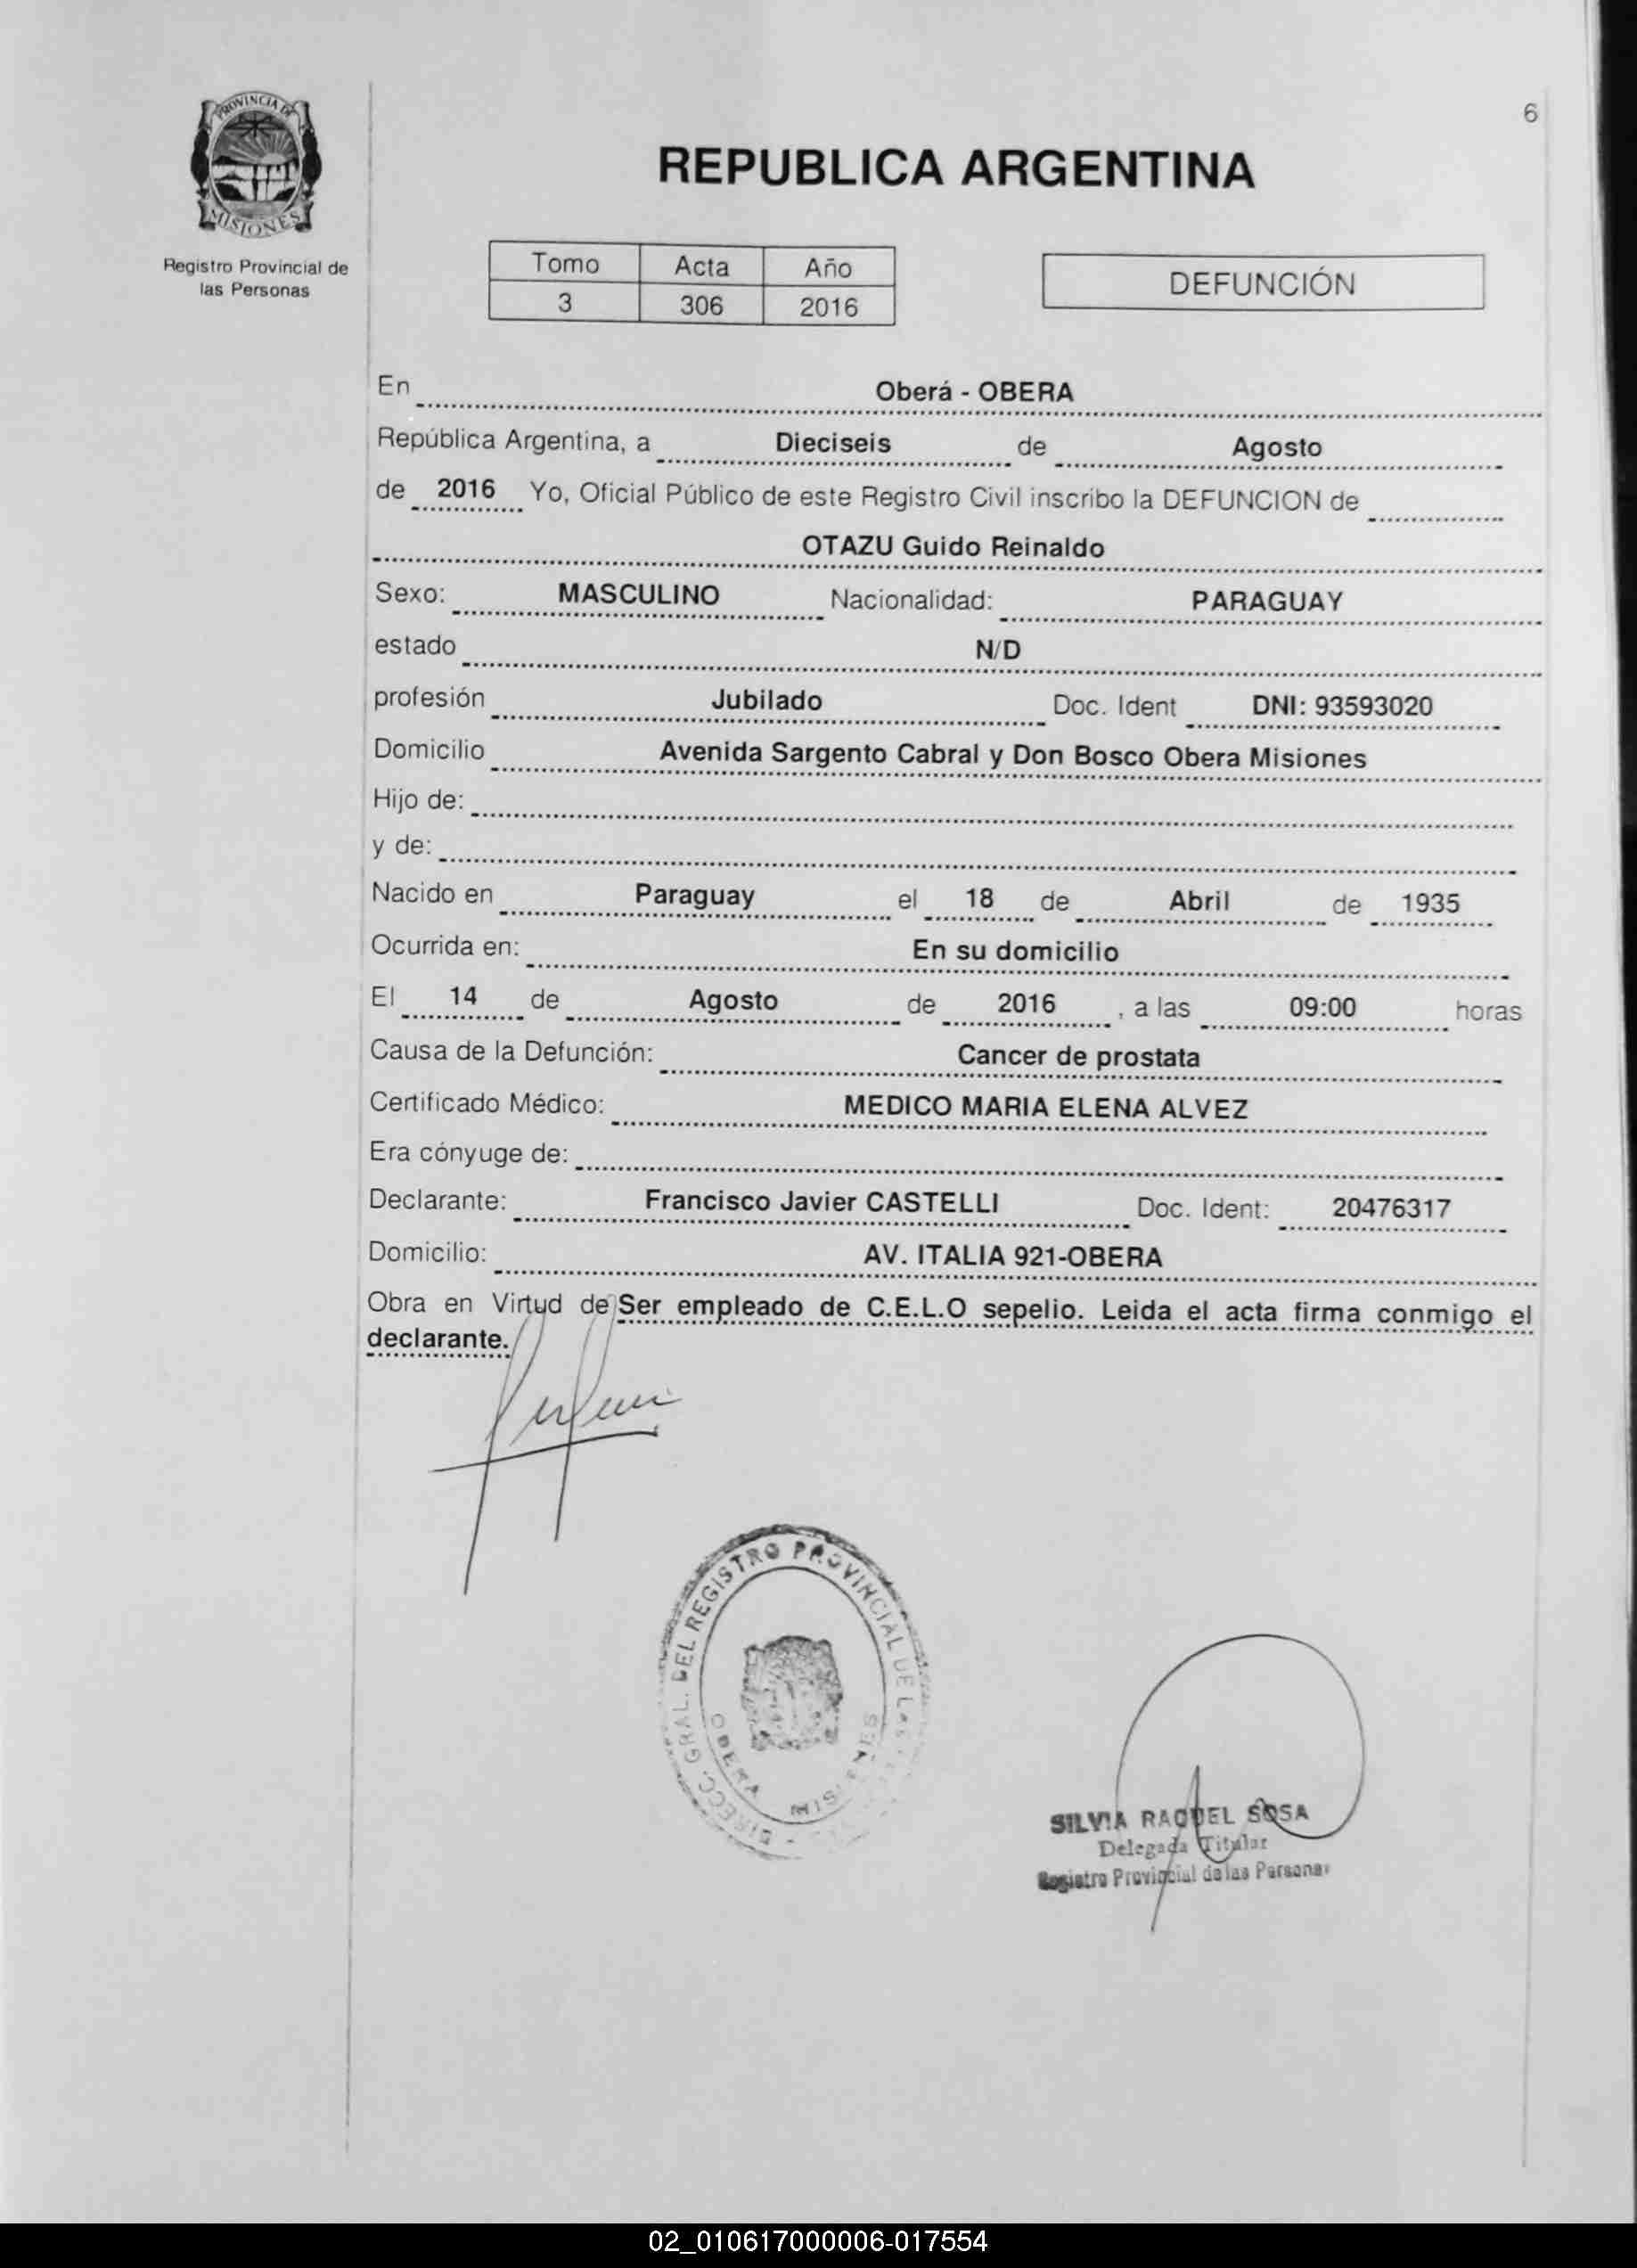 PROVINCIA DE
MISIONES
Registro Provincial de
las Personas
6
REPUBLICA ARGENTINA
Tomo Acta Año
3 306 2016
DEFUNCIÓN
En Oberá - OBERA
República Argentina, a Dieciseis de Agosto
de 2016 Yo, Oficial Público de este Registro Civil inscribo la DEFUNCION de
OTAZU Guido Reinaldo
Sexo: MASCULINO Nacionalidad: PARAGUAY
estado N/D
profesión Jubilado Doc. Ident DNI: 93593020
Domicilio Avenida Sargento Cabral y Don Bosco Obera Misiones
Hijo de:
y de:
Nacido en Paraguay el 18 de Abril de 1935
Ocurrida en: En su domicilio
El 14 de Agosto de 2016 , a las 09:00 horas
Causa de la Defunción: Cancer de prostata
Certificado Médico: MEDICO MARIA ELENA ALVEZ
Era cónyuge de:
Declarante: Francisco Javier CASTELLI Doc. Ident: 20476317
Domicilio: AV. ITALIA 921-OBERA
Obra en Virtud de Ser empleado de C.E.L.O sepelio. Leida el acta firma conmigo el
declarante.
DIRECC. GRAL. DEL REGISTRO PROVINCIAL DE LAS
OBERA MISIONES
SILVIA RAQUEL SOSA
Delegada Titular
Registro Provincial de las Personas
02_010617000006-017554